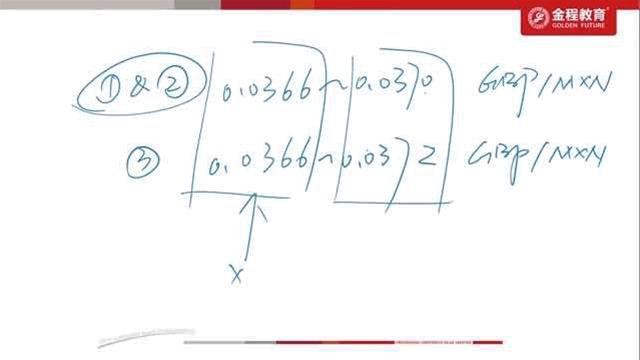 金程教育
GOLDEN FUTURE
① & ② 0.0366 ~ 0.0370 GBP/MXN
③ 0.0366 ~ 0.0372 GBP/MXN
X